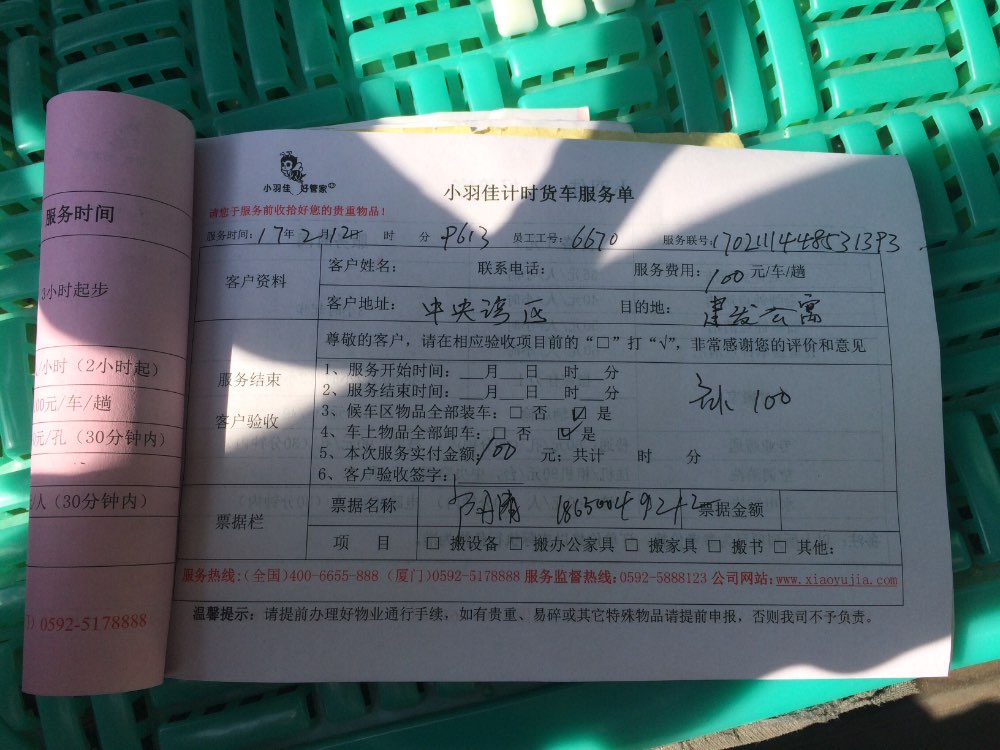 服务时间
3小时起步
/小时（2小时起）
00元/车/趟
元/孔（30分钟内）
/人（30分钟内）
0592-5178888
小羽佳 好管家
小羽佳计时货车服务单
请您于服务前收拾好您的贵重物品！
服务时间：17年2月12日 时 分 P613 员工工号：6670 服务联号：1702111448531393
客户资料 客户姓名： 联系电话： 服务费用：100元/车/趟
客户地址：中央湾区 目的地：建发公寓
尊敬的客户，请在相应验收项目前的“□”打“√”，非常感谢您的评价和意见
服务结束
客户验收
1、服务开始时间：___月___日___时___分
2、服务结束时间：___月___日___时___分
3、候车区物品全部装车：□ 否 ☑ 是
4、车上物品全部卸车：□ 否 ☑ 是
5、本次服务实付金额：100 元；共计 时 分
6、客户验收签字：
100
票据栏 票据名称 18650049242 票据金额
项 目 □ 搬设备 □ 搬办公家具 □ 搬家具 □ 搬书 □ 其他：
服务热线：（全国）400-6655-888（厦门）0592-5178888 服务监督热线：0592-5888123 公司网站：www.xiaoyujia.com
温馨提示：请提前办理好物业通行手续，如有贵重、易碎或其它特殊物品请提前申报，否则我司不予负责。